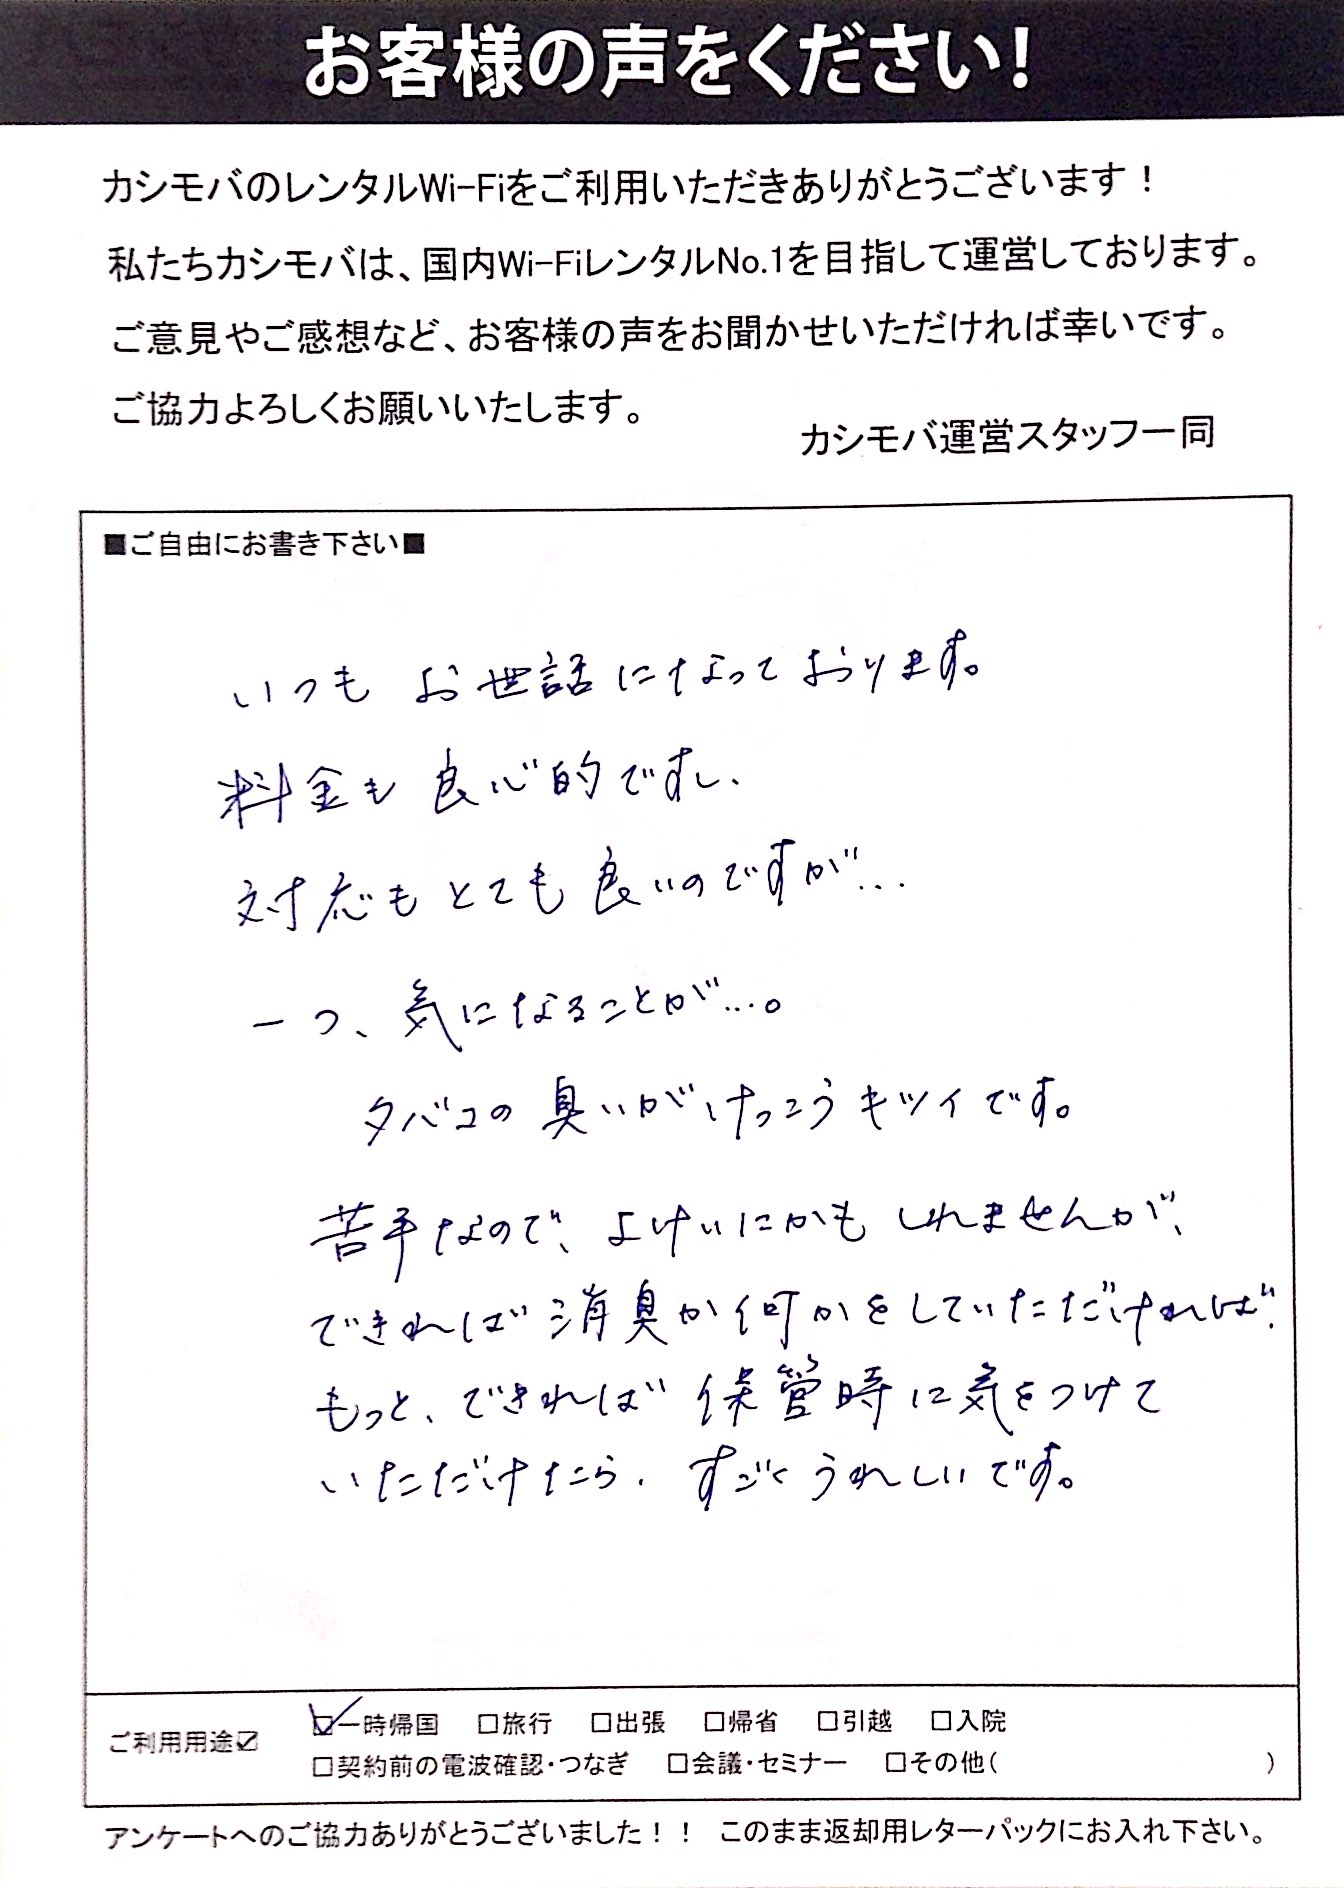 お客様の声をください!
カシモバのレンタルWi-Fiをご利用いただきありがとうございます!
私たちカシモバは、国内Wi-FiレンタルNo.1を目指して運営しております。
ご意見やご感想など、お客様の声をお聞かせいただければ幸いです。
ご協力よろしくお願いいたします。
カシモバ運営スタッフ一同
■ご自由にお書き下さい■
いつも お世話になっております。
料金も良心的ですし、
対応もとても良いのですが…
一つ、気になることが…。
タバコの臭いがけっこうキツイです。
苦手なので、よけいにかもしれませんが、
できれば消臭か何かをしていただければ、
もっと、できれば保管時に気をつけて
いただけたら、すごくうれしいです。
ご利用用途☑ ☑一時帰国 □旅行 □出張 □帰省 □引越 □入院
□契約前の電波確認・つなぎ □会議・セミナー □その他( )
アンケートへのご協力ありがとうございました!! このまま返却用レターパックにお入れ下さい。